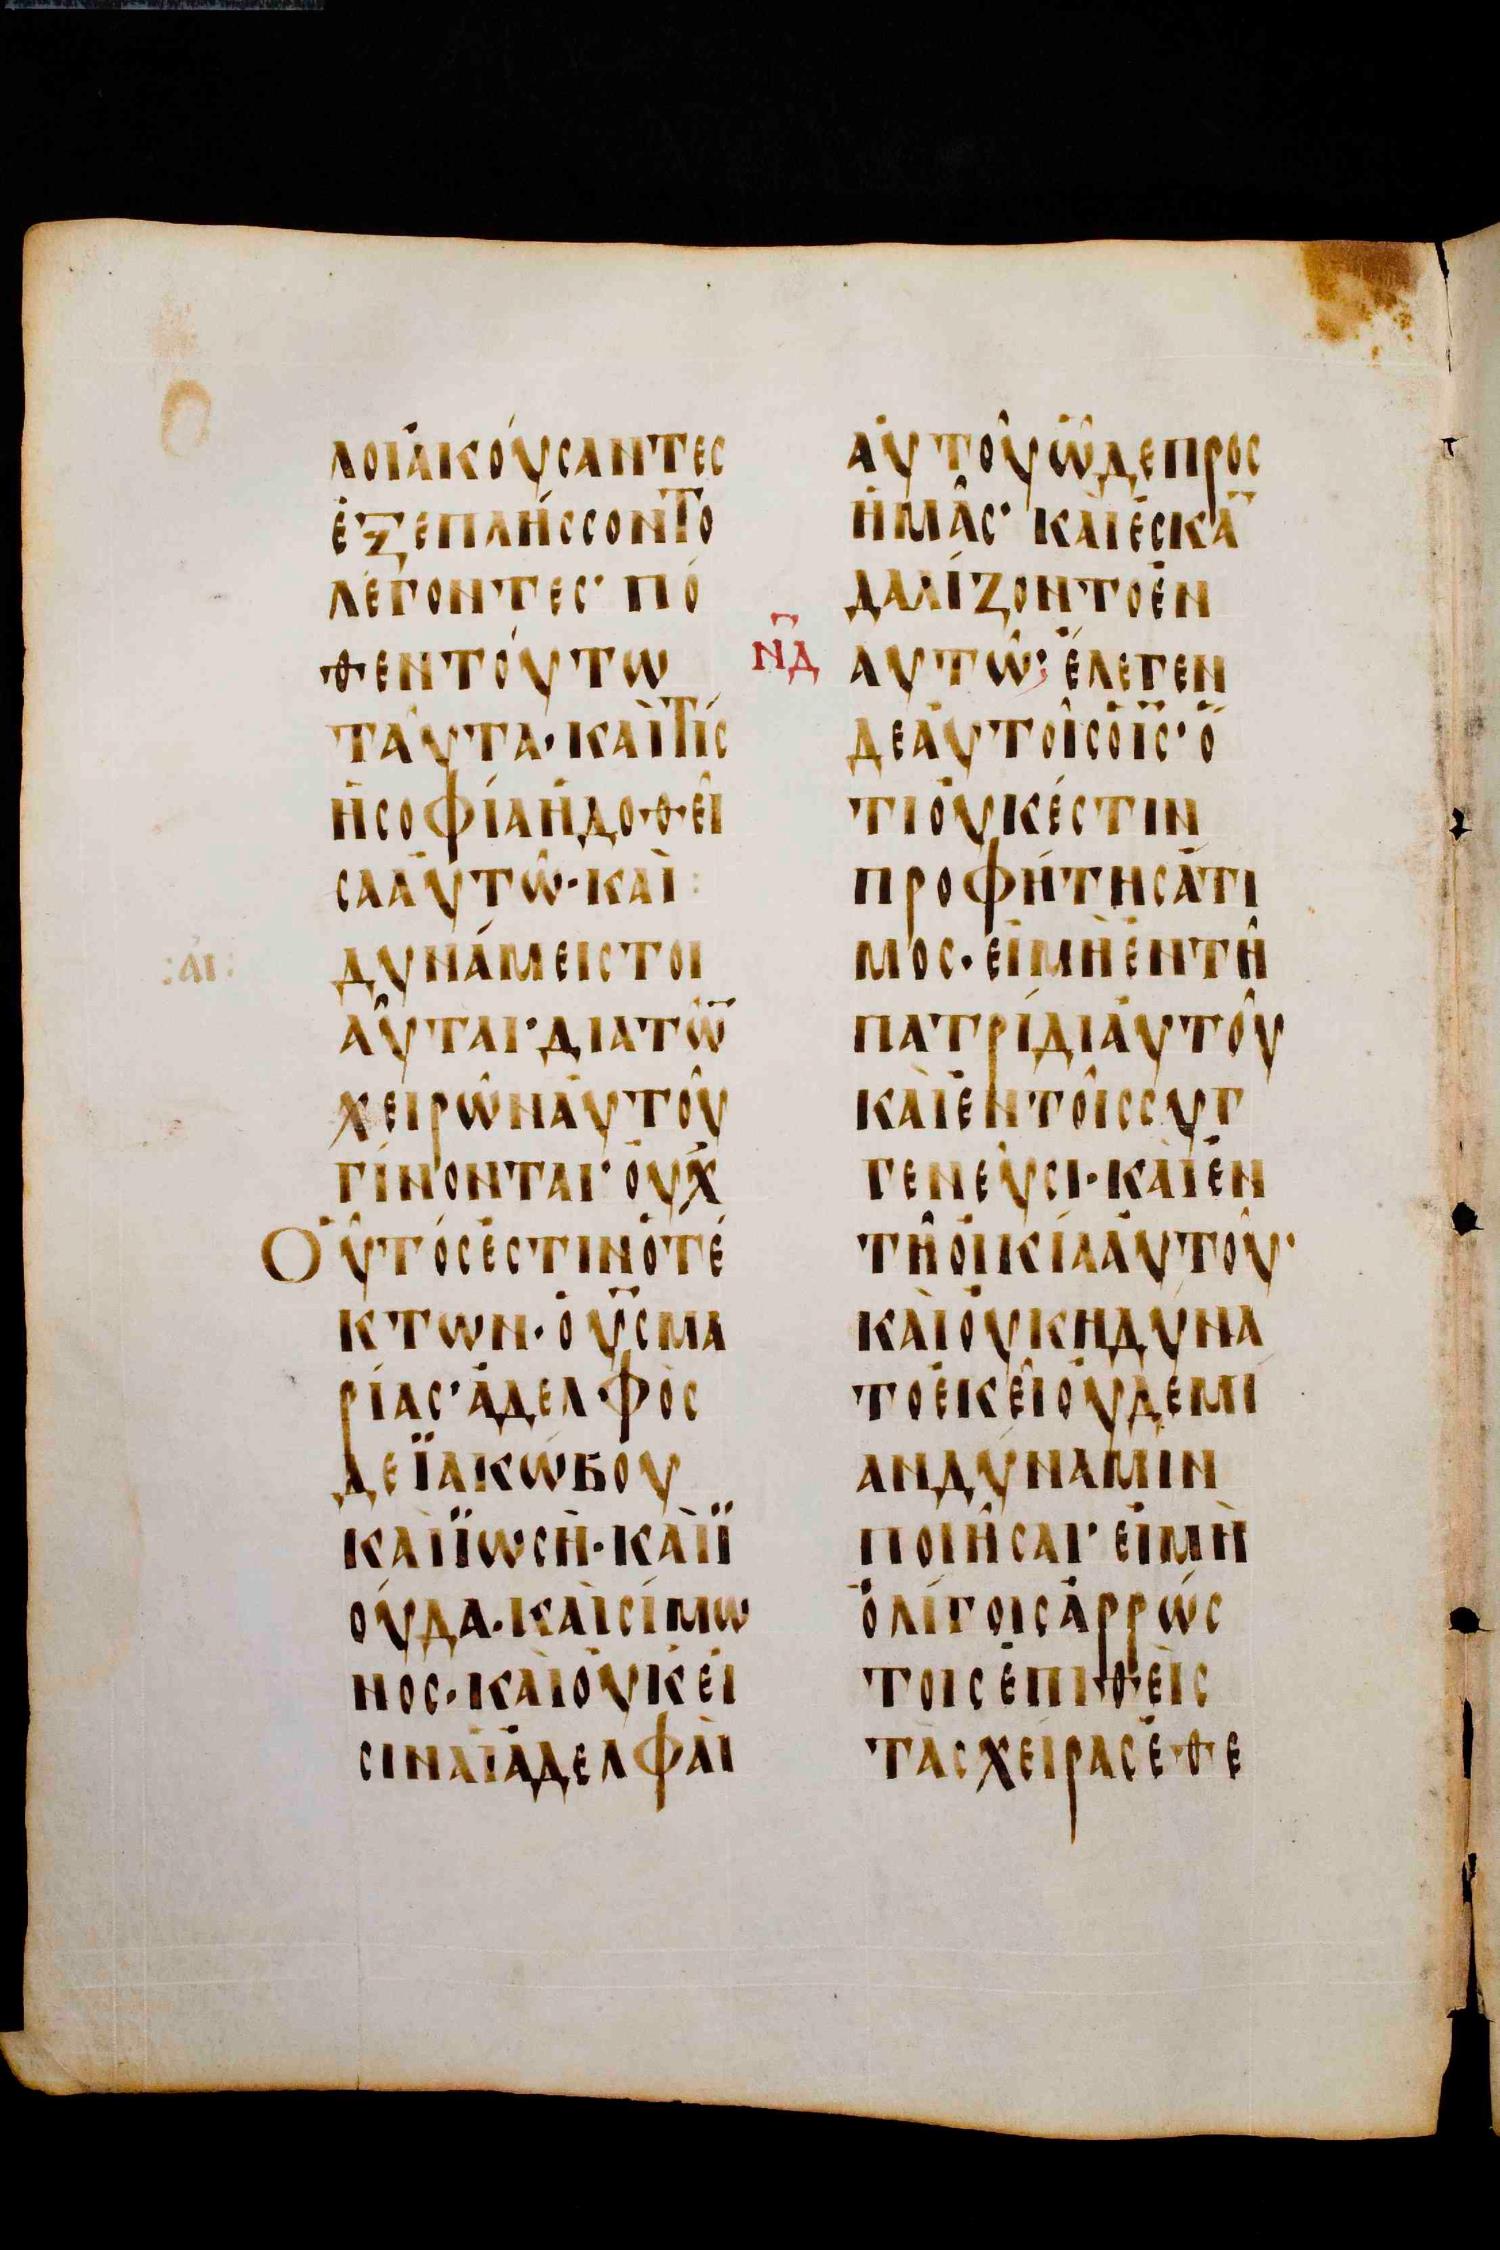 λοὶἀκούσαντες
ἐξεπλήσσοντο
λέγοντες· πό
θεντούτω
ταῦτα· καὶτίς
ἡσοφίαἡδοθεῖ
σααὐτῶ· καὶ:
:αι: δυνάμειςτοι
αῦται· διατῶ̅
χειρῶναὐτοῦ
γίνονται· οὐχ
Οὗτόςἐστινὁτέ
κτων· ὁυ̅ςμα
ρίας· ἀδελφὸς
δεϊακώβου
καὶϊωσῆ· καὶϊ
ούδα· καὶσίμω
νος· καὶοὐκεἰ
σιναἱἀδελφαὶ
αὐτοῦὧδεπρος
ἡμᾶς· καὶἐσκα̅
δαλίζοντοἐν
ν̅δ αὐτῶ· ἔλεγεν
δεαὐτοῖςὁι̅ς· ὅ
τιοὐκἔστιν
προφήτηςἄτι
μος· εἰμὴἐντῆ
πατρίδιαὐτοῦ
καὶἐντοῖςσυγ
γενεῦσι· καὶἐν
τῆοἰκίααὐτοῦ·
καὶοὐκηδύνα
τοἐκεῖοὐδεμί
ανδύναμιν
ποιῆσαι· εἰμὴ
ὀλίγοιςἀρρώς
τοιςἐπιθεὶς
τὰςχεῖραςἐθε